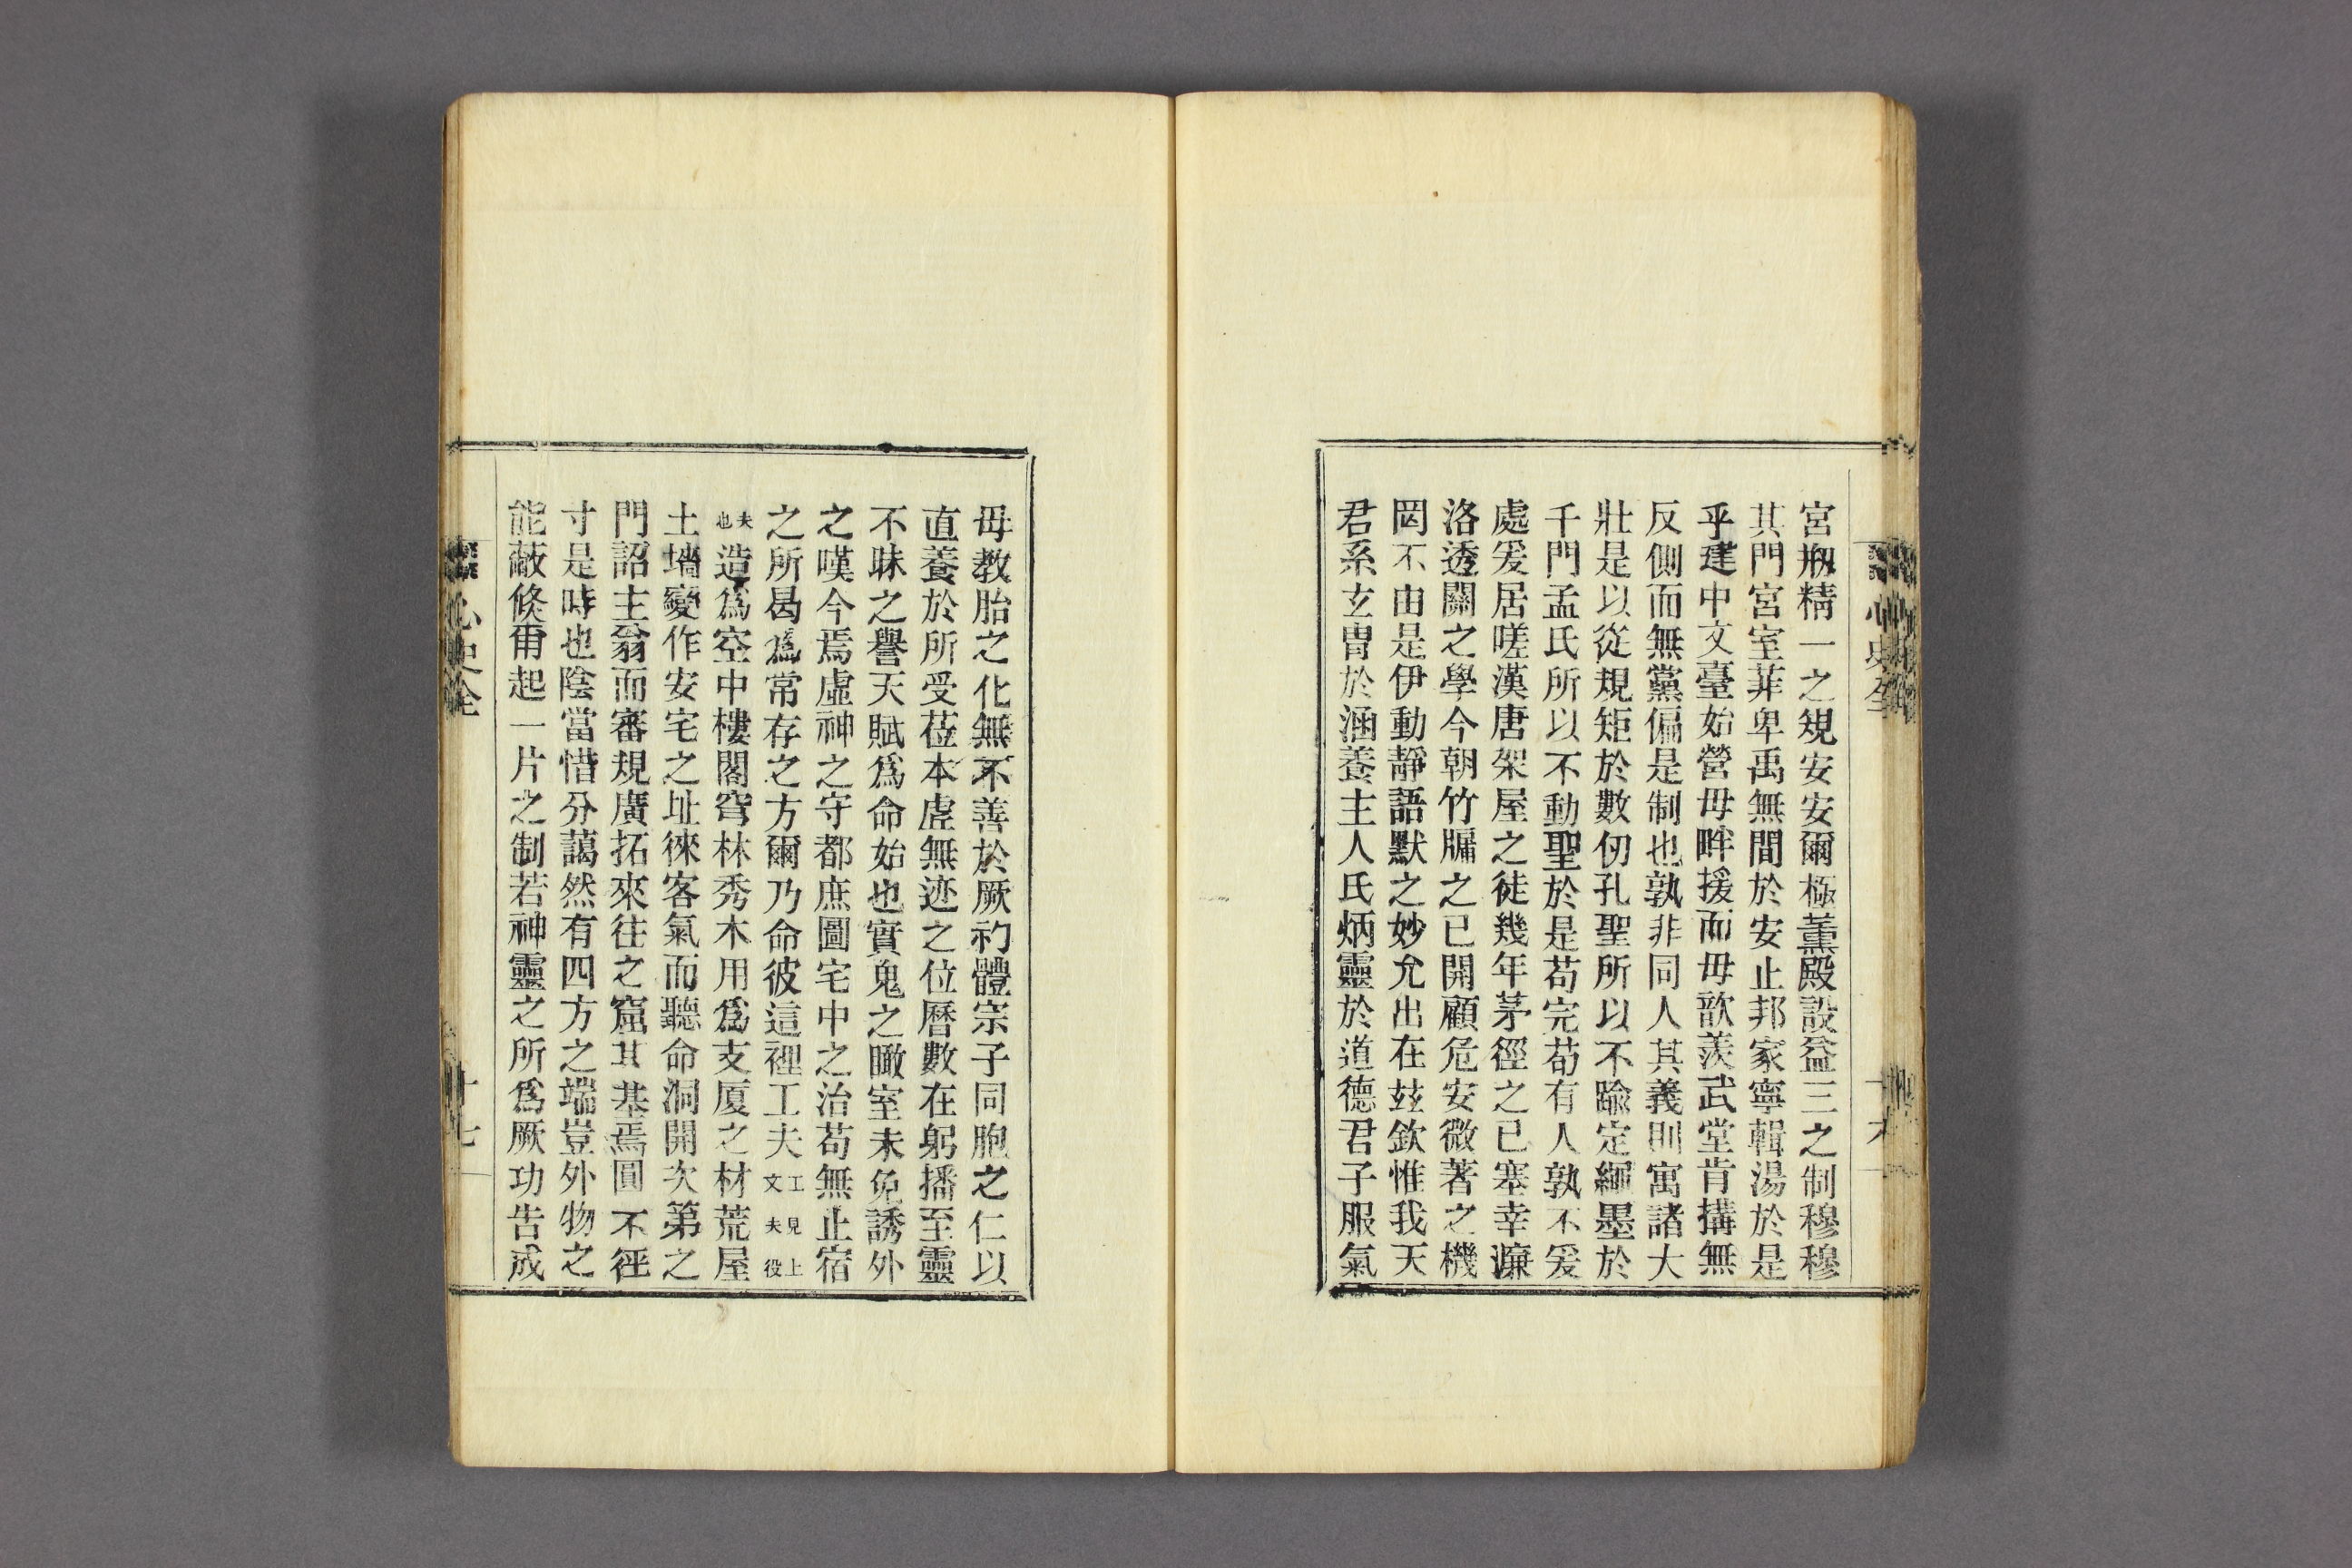 心史全
宮剏精一之規安安爾極薰殿設益三之制穆穆
其門宮室菲卑禹無間於安止邦家寧輯湯於是
乎建中文臺始營毋畔援而毋歆羨武堂肯搆無
反側而無黨偏是制也孰非同人其義則寓諸大
壯是以從規矩於數仞孔聖所以不踰定繩墨於
千門孟氏所以不動聖於是苟完苟有人孰不爰
處爰居嗟漢唐架屋之徒幾年茅徑之已塞幸濂
洛透關之學今朝竹牖之已開顧危安微著之機
罔不由是伊動靜語默之妙允出在玆欽惟我天
君系玄冑於涵養主人氏炳靈於道德君子服氣
母教胎之化無不善於厥初體宗子同胞之仁以
直養於所受莅本虛無迹之位曆數在躬播至靈
不昧之譽天賦爲命始也實鬼之瞰室未免誘外
之嘆今焉虛神之守都庶圖宅中之治苟無止宿
之所曷爲常存之方爾乃命彼這裡工夫工見上文夫役
夫也造爲空中樓閣穹林秀木用爲支厦之材荒屋
土墻變作安宅之址徠客氣而聽命洞開次第之
門詔主翁而審規廣拓來往之窟其基焉圓不徑
寸是時也陰當惜分藹然有四方之端豈外物之
能蔽倐爾起一片之制若神靈之所爲厥功告成
心史全
十七